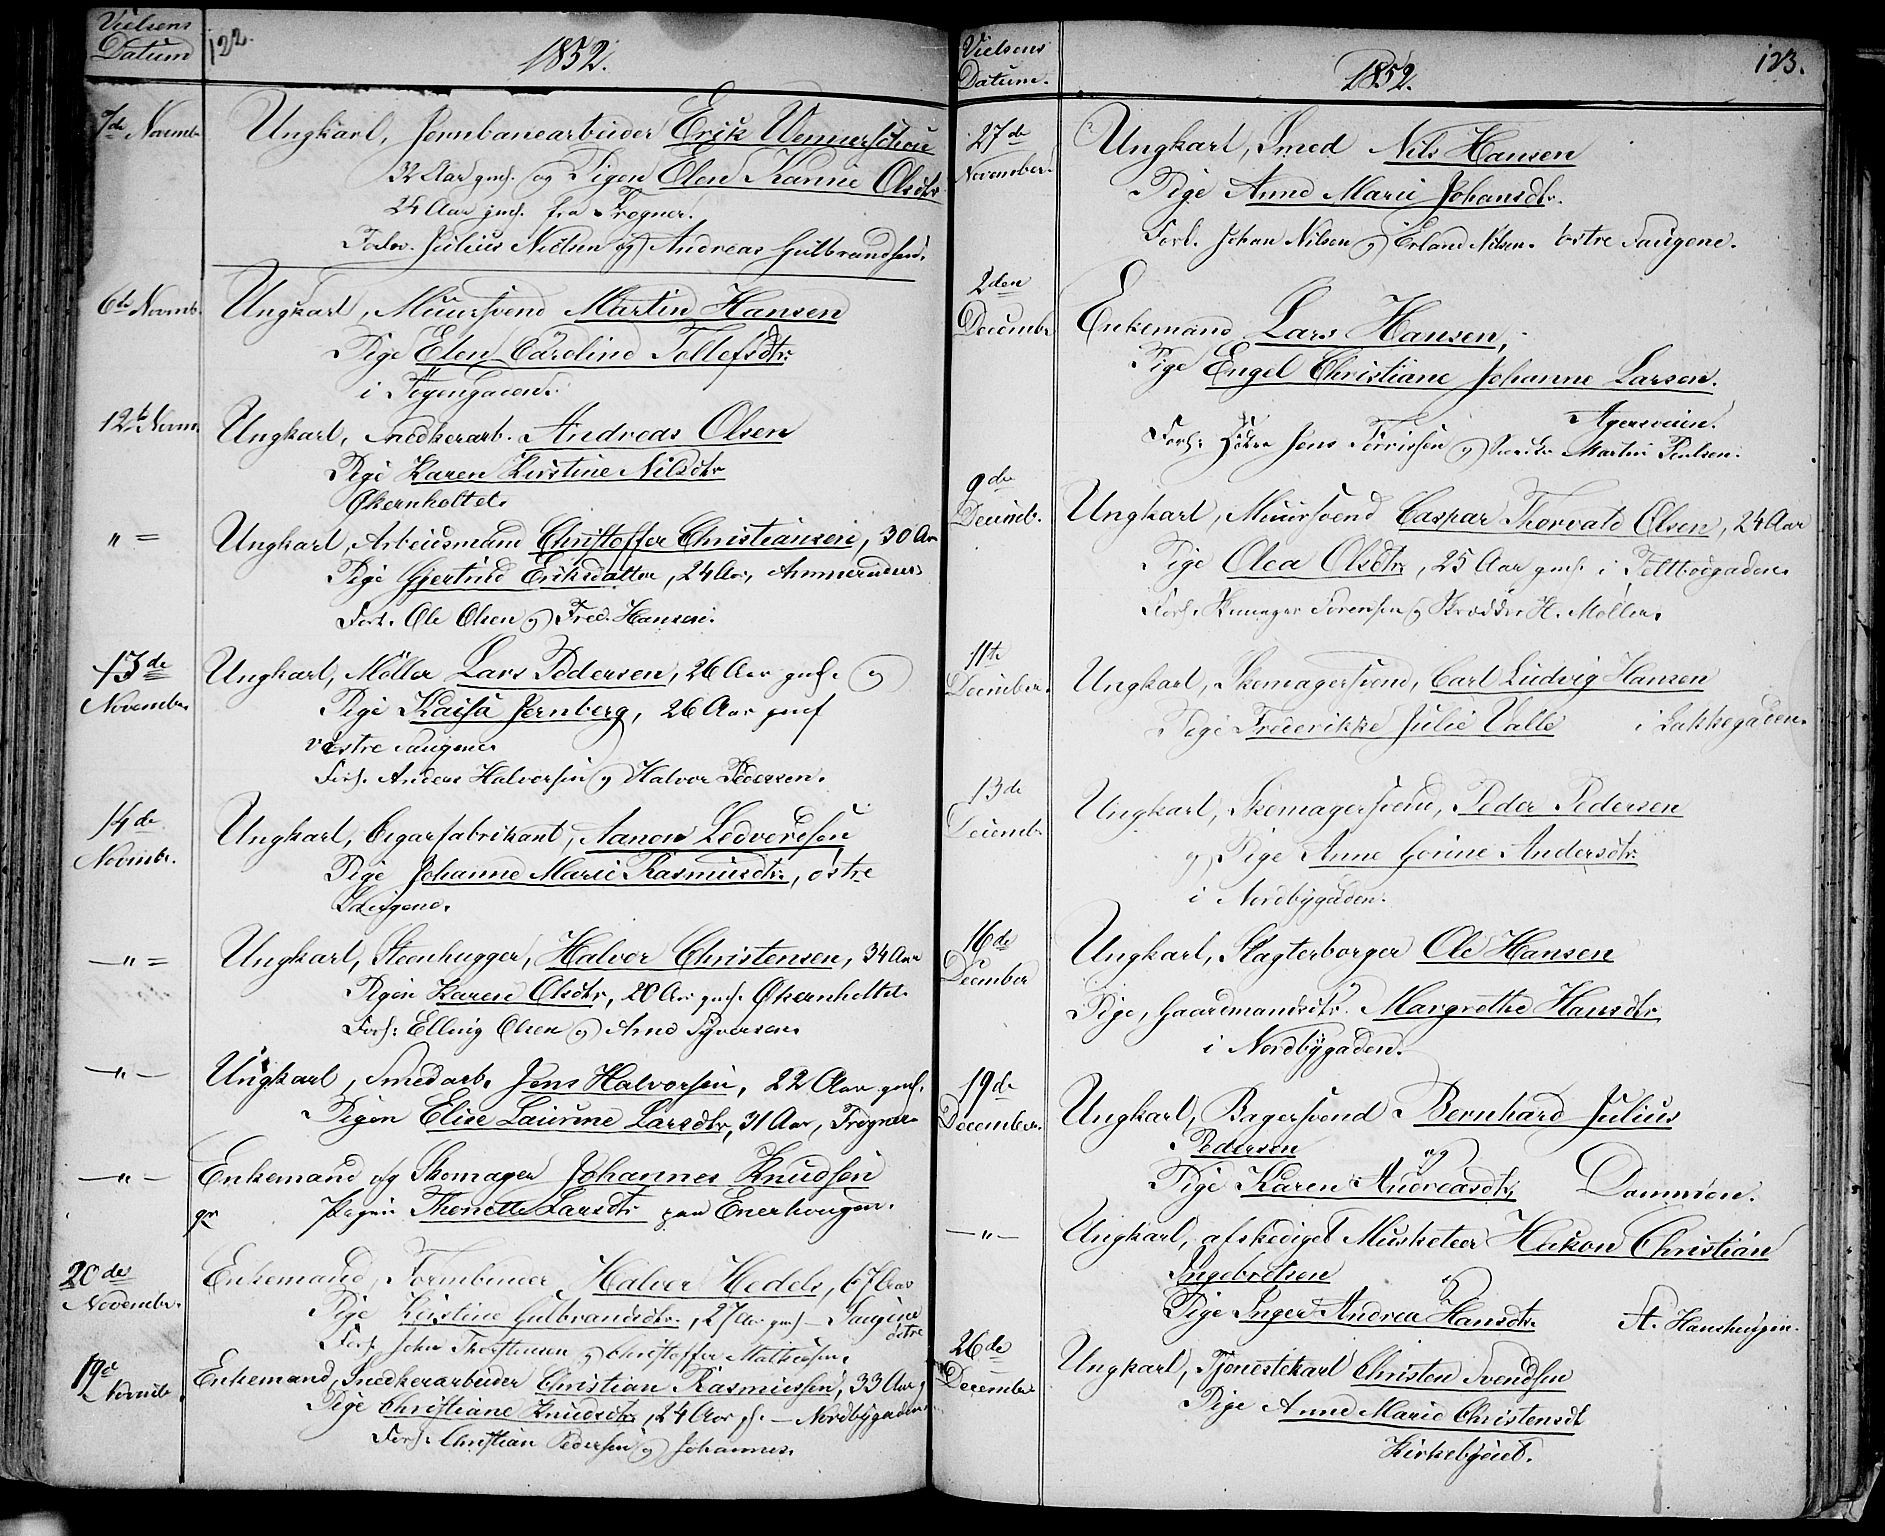 Vielsens
Datum
122.
1852.
7de Novemb.
Ungkarl, Jernbanearbeider Erik
32 Aar gml. og Pigen Olea Karine Olsdtr
24 Aar gml. fra Frogner.
Forlov. Julius Nielsen og Andreas Gulbrandsen.
6te Novemb.
Ungkarl, Muursvend Martin Hansen
Pige Elen Caroline Tollefsdtr.
i
12te Novm.
Ungkarl, Snedkerarb. Andreas Olsen
Pige Karen Kirstine Nilsdtr
Økernholtet.
" =
Ungkarl, Arbeidsmand Christoffer Christiansen, 30 Aar
Pige Gjertrud Eriksdatter, 24 Aar, Ammeruden
Forl. Ole Olsen og Fred. Hansen.
13de
November
Ungkarl, Møller Lars Pedersen, 26 Aar gml. og
Pige Kaisa Jernberg, 26 Aar gml
vestre Saugene
Forl. Anders Halvorsen og Halvor Pedersen.
14de
Novembr.
Ungkarl, Cigarfabrikant, Aanon Ledvardsen
Pige Johanne Marie Rasmusdtr., østre
Saugene.
— " =
Ungkarl, Steenhugger, Halvor Christensen, 34 Aar
Pigen Karen Olsdtr, 20 Aar gml. Økernholtet.
Forl: Elling Olsen og Arne Syversen.
— " —
Ungkarl, Smedarb. Jens Halvorsen, 22 Aar gml.
Pigen Elise Laurine Larsdtr, 31 Aar, Frogner
— " —
Enkemand og Skomager Johannes Knudsen
Pigen Thonette Larsdtr paa Enerhougen.
20de
Novembr.
Enkemand, Formbruer Halvor Hedels, 67 Aar
Pige Kirstine Gulbrandsdtr., 27 Aar gml — Saugene
østre
Forl. John Thorstensen og Christoffer Mathiesen.
19de
Novemb.
Enkemand, Snedkerarbeider Christian Rasmussen, 33 Aar,
Pige Christiane Knudsdtr, 24 Aar gl. — Nordbygaden
Forl. Christian Pedersen og Johannes.
Vielsens
Datum.
1852.
123.
27de
November.
Ungkarl, Smed Nils Hansen
Pige Anne Marie Johansdtr.
Forl. Johan Nilsen og Erland Nilsen. østre Saugene.
2den
Decembr
Enkemand, Lars Hansen,
Pige Engel Christiane Johanne Larsen.
Agersveien.
Forl: Jens og Martin Poulsen.
9de
Decemb.
Ungkarl, Muursvend Caspar Thorvald Olsen, 24 Aar
Pige Olea Olsdtr, 25 Aar gml. i Toltbodgaden
Forl. Sørensen og Skrædder H. Møller.
11te
December.
Ungkarl, Skomagersvend, Carl Ludvig Hansen
Pige Frederikke Julie Valle i Lakkegaden
13de
Decemb.
Ungkarl, Skomagersvend, Peder Pedersen
og Pige Anne Gorine Andersdtr.
i Nordbygaden.
16de
December
Ungkarl, Slagterborger Ole Hansen
Pige, Gaardmandsdtr. Margrethe Hansdtr
i Nordbygaden.
19de
December.
Ungkarl, Bagersvend Bernhard Julius
Pedersen
og
Pige Karen Andreasdtr, Dammen.
— " —
Ungkarl, afskediget Musketeer Hakon Christian
Ingebretsen
og
Pige Inger Andrea Hansdtr. St. Hanshougen.
26de
Decembr
Ungkarl, Tjenestekarl Christen Svendsen
Pige Anne Marie Christensdt
Kirkebyeiet.